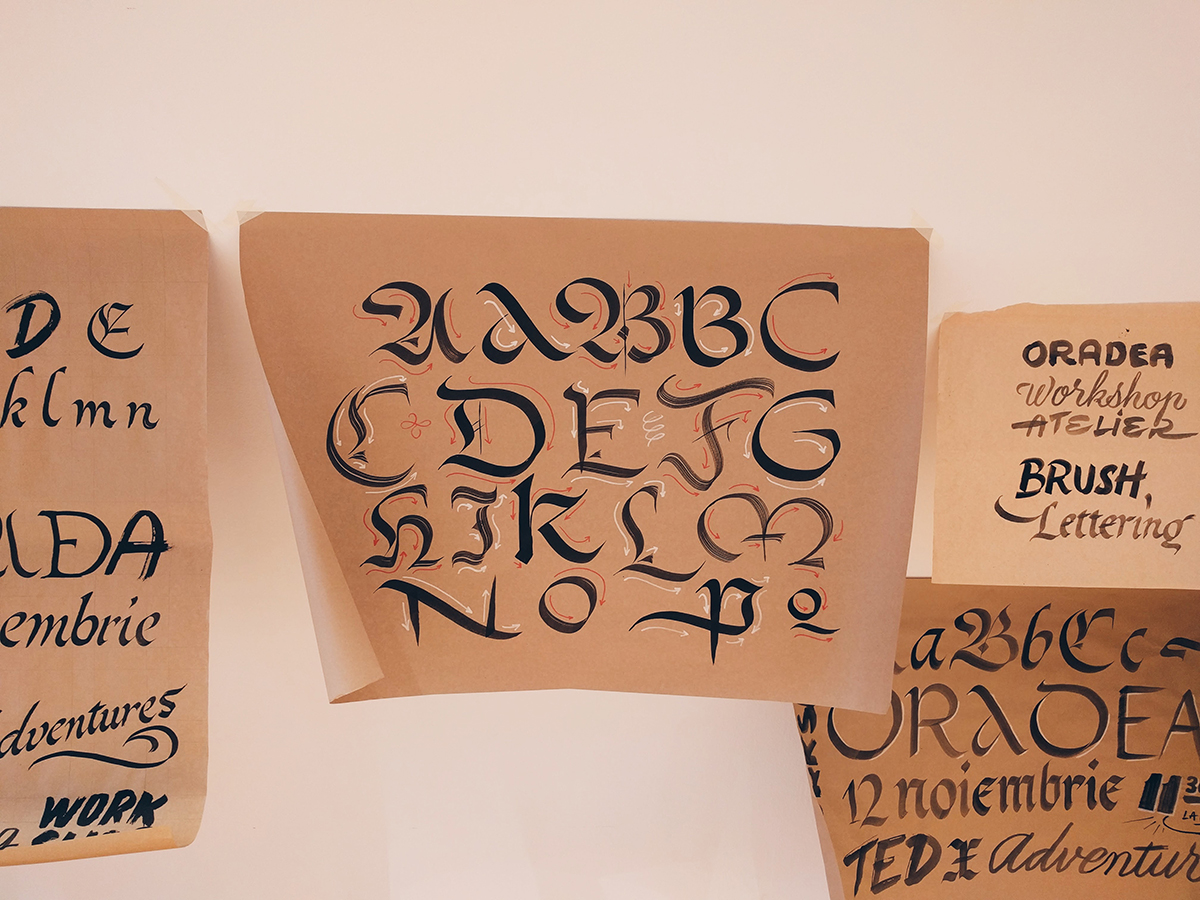 D E
k l m n
DA
embrie
dventures
WORK
A A B B B C
C D E F G
H I K L M
N O P Q
ORADEA
Workshop
ATELIER
BRUSH,
Lettering
a B b C c
ORADEA
12 noiembrie
TEDX Adventur